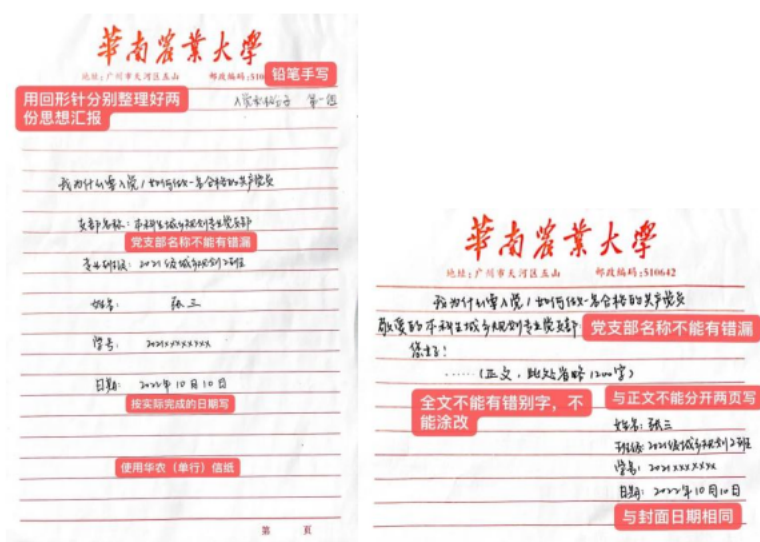 華南农業大學
地址:广州市天河区五山 邮政编码:510
铅笔手写
用回形针分别整理好两
份思想汇报
入党积极分子 第一组
我为什么要入党/如何做一名合格的共产党员
支部名称:本科生城乡规划专业党支部
党支部名称不能有错漏
专业班级:2021级城乡规划2班
姓名: 张三
学号: 2021xxxxxxxx
日期: 2022年10月10日
按实际完成的日期写
使用华农(单行)信纸
第 页
華南农業大學
地址:广州市天河区五山 邮政编码:510642
我为什么要入党/如何做一名合格的共产党员
敬爱的本科生城乡规划专业党支部:
党支部名称不能有错漏
您好!
……(正文,此处省略1200字)
全文不能有错别字,不
能涂改
与正文不能分开两页写
姓名:张三
班级:2021级城乡规划2班
学号:2021xxxxxxxx
日期:2022年10月10日
与封面日期相同